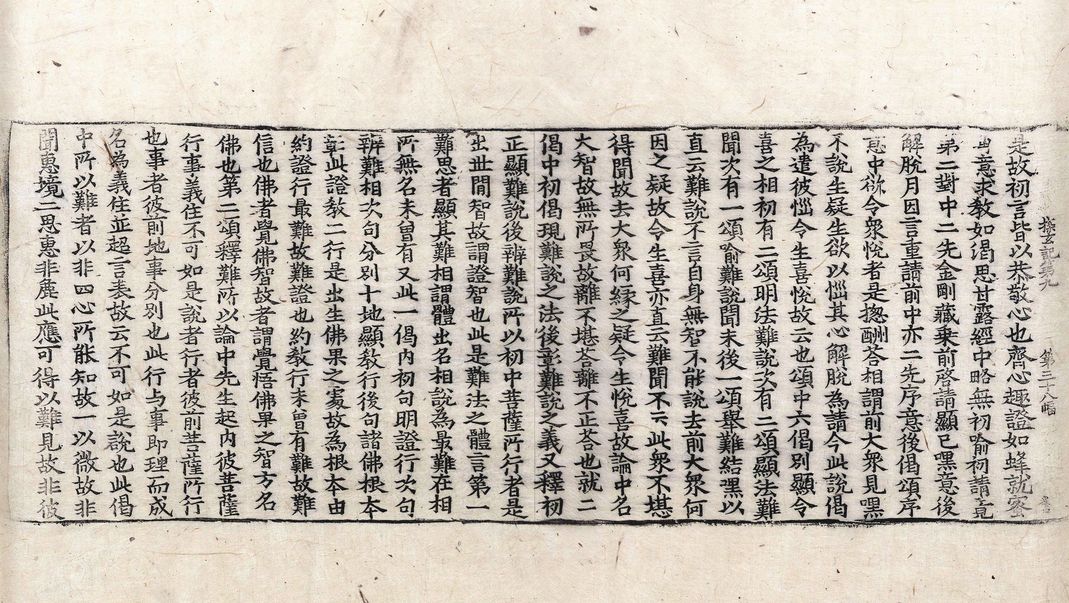 是故初言皆以恭敬心也齊心趣證如蜂就蜜
探玄記第九 第三十八幅
由意求教如渴思甘露經中略無初喻初請竟
第二對中二先金剛藏乗前啓請顯已嘿意後
解脫月因言重請前中亦二先序意後偈頌序
意中欲令衆恱者是揔酬荅相謂前大衆見嘿
不說生疑生欲以惱其心解脫為請今此說偈
為遣彼惱令生喜恱故云也頌中六偈別顯令
喜之相初有二頌明法難說次有二頌顯法難
聞次有一頌喻難說聞末後一頌舉難結嘿以
直云難說不言自身無智不能說去前大衆何
因之疑故令生喜亦直云難聞不云此衆不堪
得聞故去大衆何緣之疑令生恱喜故論中名
大智故無所畏故離不堪荅離不正荅也就二
偈中初偈現難說之法後彰難說之義又釋初
正顯難說後辨難說所以初中菩薩所行者是
出世間智故謂證智也此是難法之體言第一
難思者顯其難相謂體出名相說為最難在相
所無名未曾有又此一偈內初句明證行次句
辨難相次句分別十地顯教行後句諸佛根本
彰此證教二行是出生佛果之因故為根本由
約證行最難故難證也約教行未曾有難故難
信也佛者覺佛智故者謂覺悟佛果之智方名
佛也第二頌釋難所以論中先生起內彼菩薩
行事義住不可如是說者行者彼前菩薩所行
也事者彼前地事分別也此行与事即理而成
名為義住並超言表故云不可如是說也此偈
中所以難者以非四心所能知故一以微故非
聞惠境二思惠非麁此應可得以難見故非彼